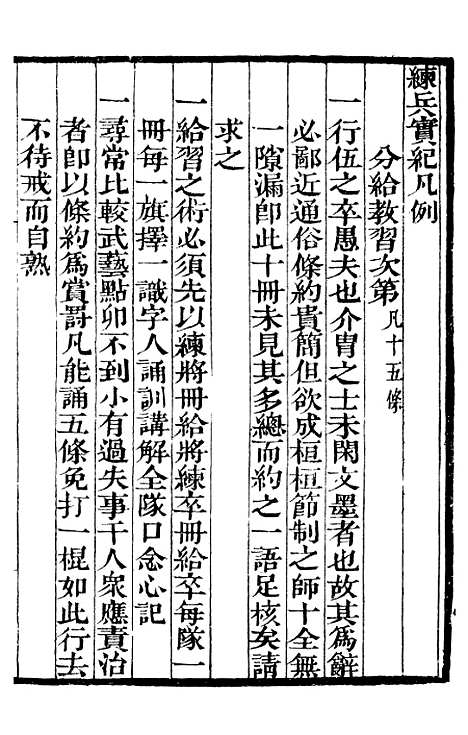 練兵實紀凡例
分給教習次第凡十五條
一行伍之卒愚夫也介胄之士未閑文墨者也故其爲辭
必鄙近通俗條約貴簡但欲成桓桓節制之師十全無
一隙漏卽此十冊未見其多總而約之一語足核矣請
求之
一給習之術必須先以練將冊給將練卒冊給卒每隊一
冊每一旗擇一識字人誦訓講解全隊口念心記
一尋常比較武藝點卯不到小有過失事干人衆應責治
者卽以條約爲賞罰凡能誦五條免打一棍如此行去
不待戒而自熟